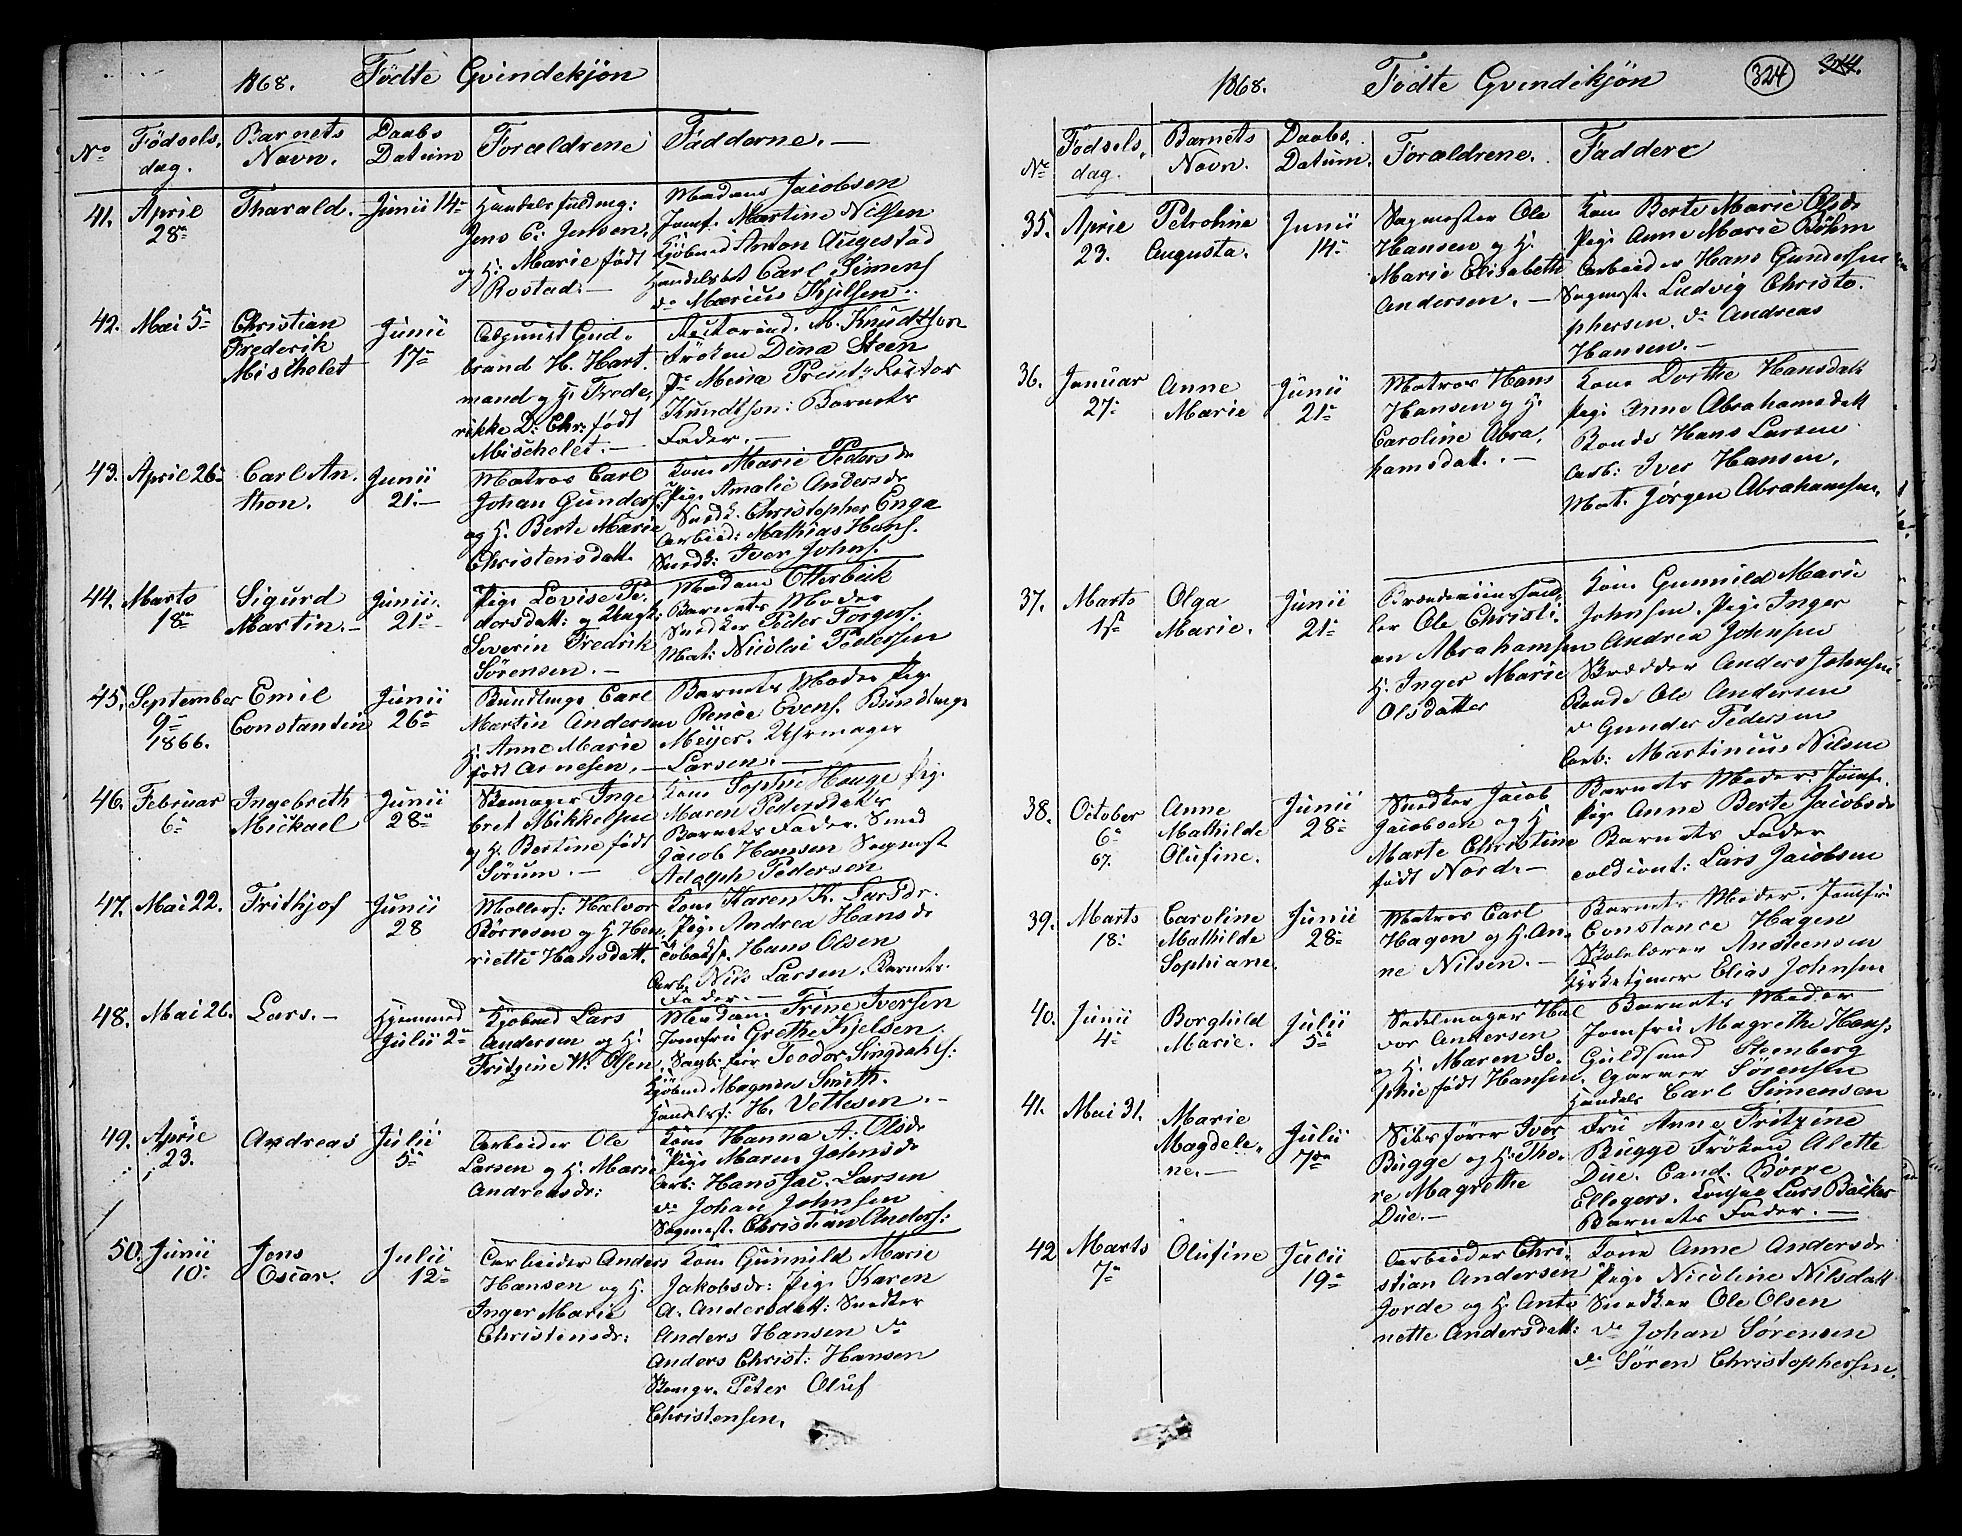 1868. Födte Qvindekjön
No
Födsels, dag.
Barnets Navn.
Daabs Datum
Forældrene
Fadderne. —
41. April 28de
Tharald.
Junii 14de
Handelsfuldmg:
Jens C: Jensen,
og H: Marie födt
Rostad. —
Madam Jacobsen
Jomf. Martine Nilsen
Kjöbmd Anton Augestad
Handelsbet Carl Simens
do Marius Kjelsen.
42. Mai 5te
Christian
Frederik
Mischelet
Junii
17de
Gud-
brand H. Hart.
mand og H: Frede,
rikke D: Chr: födt
Mischelet. —
M. Knudtson
Fröken Dina Steen
Rector
Knudtson: Barnets
Fader. —
43. April 26de
Carl An,
thon.
Junii
21. —
Matros Carl
Johan Gunders:
og H. Berte Marie
Christensdatt.
Kone Marie Pedersdr
Pige Amalie Andersdr
Snedk. Christopher Enga
Arbeid: Mathias Hans.
Snedk: Iver Johns.
44. Marts
18de
Sigurd
Martin. —
Junii.
21de
Pige Lovise Pe-
dersdatt: og Ungk:
Severin Fredrik
Sörensen. —
Madam Otterbeck
Barnets Moder
Snedker Peder Torgers:
Mat: Nicolai Pedersen
45. September
9de
1866.
Emil
Constantin
Junii
26de
Bundtmg: Carl
Martin Andersen
H. Anne Marie
födt Arnesen. —
Barnets Moder Pige
Renée Evens. Bundtmgr
Meijer. Uhrmager
Larsen. —
46. Februar
6te
Ingebreth
Mickael
Junii
28de
Skomager Inge
bret Mikkelsen
og H. Bertine födt
Sörum. —
Kone Sophie Hauge Pig.
Maren Pedersdatter
Barnets Fader. Smed
Jacob Hansen Sagmest
Adolph Pedersen
47. Mai 22.
Frithjof
Junii
28
Möllers: Halvor
Börresen og H Hen,
riette Hansdatt.
Kone Karen K. Larsdr.
Pige Andrea Hansdr
Hans Olsen
Arb. Nils Larsen. Barnets
Fader. —
48. Mai 26.
Lars. —
Hjemmed
Julii 2de
Kjöbmd Lars
Andersen og H.
Fritzine W. Olsen
Madam. Trine Iversen
Jomfru Grethe Kjelsen.
Teodor Singdahls:
Kjöbmd Magnus Smith.
Handelsf: H. Vettesen. —
49. April
23.
Andreas
Julii
5te
Arbeider Ole
Larsen og H. Marie
Andreasdr:
Kone Hanna A. Olsdr
Pige Maren Johnsdr
Arb: Hans Jac. Larsen
do Johan Johnsen
Sagmest. Christian Anders:
50. Junii
10de
Jens
Oscar.
Julii
12te
Arbeider Anders
Hansen og H.
Inger Marie
Christensdr:
Kone Gunnild Marie
Jakobsdr: Pige Karen
A. Andersdatt: Snedker
Anders Hansen do
Anders Christ: Hansen
Skomgr. Peter Oluf
Christensen.
1868. Födte Qvindekjön 324 314.
No
Födsels, dag.
Barnets Navn.
Daabs, Datum.
Forældrene.
Faddere
35. April
23.
Petroline
Augusta.
Junii
14de
Sagmester Ole
Hansen og H.
Marie Elisabeth
Andersen. —
Kone Berte Marie Olsdr
Pige Anne Marie Böhm
Arbeider Hans Gundersen
Sagmest. Ludvig Christo.
phersen. do Andreas
Hansen. —
36. Januar
27de
Anne
Marie
Junii
21de
Matros Hans
Hansen og H.
Caroline Abra,
hamsdatt. —
Kone Dorthe Hansdatt
Pige Anne Abrahamsdatt
Bonde Hans Larsen
Arb: Iver Hansen.
Mat. Jörgen Abrahamsen.
37. Marts
1ste
Olga
Marie.
Junii
21de
Brændeviinshand,
ler Ole Christi.
an Abrahamsen
H. Inger Marie
Olsdatter
Kone Gunnild Marie
Johnsen. Pige Inger
Andrea Johnsen
Skrædder Anders Johnsen
Bonde Ole Andersen
do Gunder Pedersen
Arb: Martinius Nilsen
38. October
6te
67.
Anne
Mathilde
Olufine.
Junii
28de
Snedker Jacob
Jacobsen og H
Marte Christine
födt Nord. —
Barnets Moder. Jomf.
Pige Anne Berte Jacobsdr
Barnets Fader
Lars Jacobsen
39. Marts
18de
Caroline
Mathilde
Sophiane.
Junii
28de
Matros Carl
Hagen og H. An,
ne Nilsen. —
Barnets Moder. Jomfru
Constance Hagen
Skolelærer Anstensen
Kirketjener Elias Johnsen
40. Junii
4de
Borghild
Marie.
Julii
5te
Sadelmager Hal
vor Andersen
og H. Maren So,
phie födt Hansen.
Barnets Moder
Jomfru Magrethe Hans.
Guldsmed Steenberg
Garver Sörensen
Handels Carl Simensen
41. Mai 31.
Marie
Magdele,
ne. —
Julii
7de
Iver
Bugge og H. Tho,
re Magrethe
Due. —
Fru Anne Fritzine
Bugge Fröken Alette
Due. Cand. Börre
Ellegers. Lars Backer
Barnets Fader. —
42 Marts
7de
Olufine
Julii
19de
Arbeider Chri,
stian Andersen
Jorde og H. Anto
nette Andersdatt:
Kone Anne Andersdr
Pige Nicoline Nilsdatt
Snedker Ole Olsen
do Johan Sörensen
do Sören Christophersen.